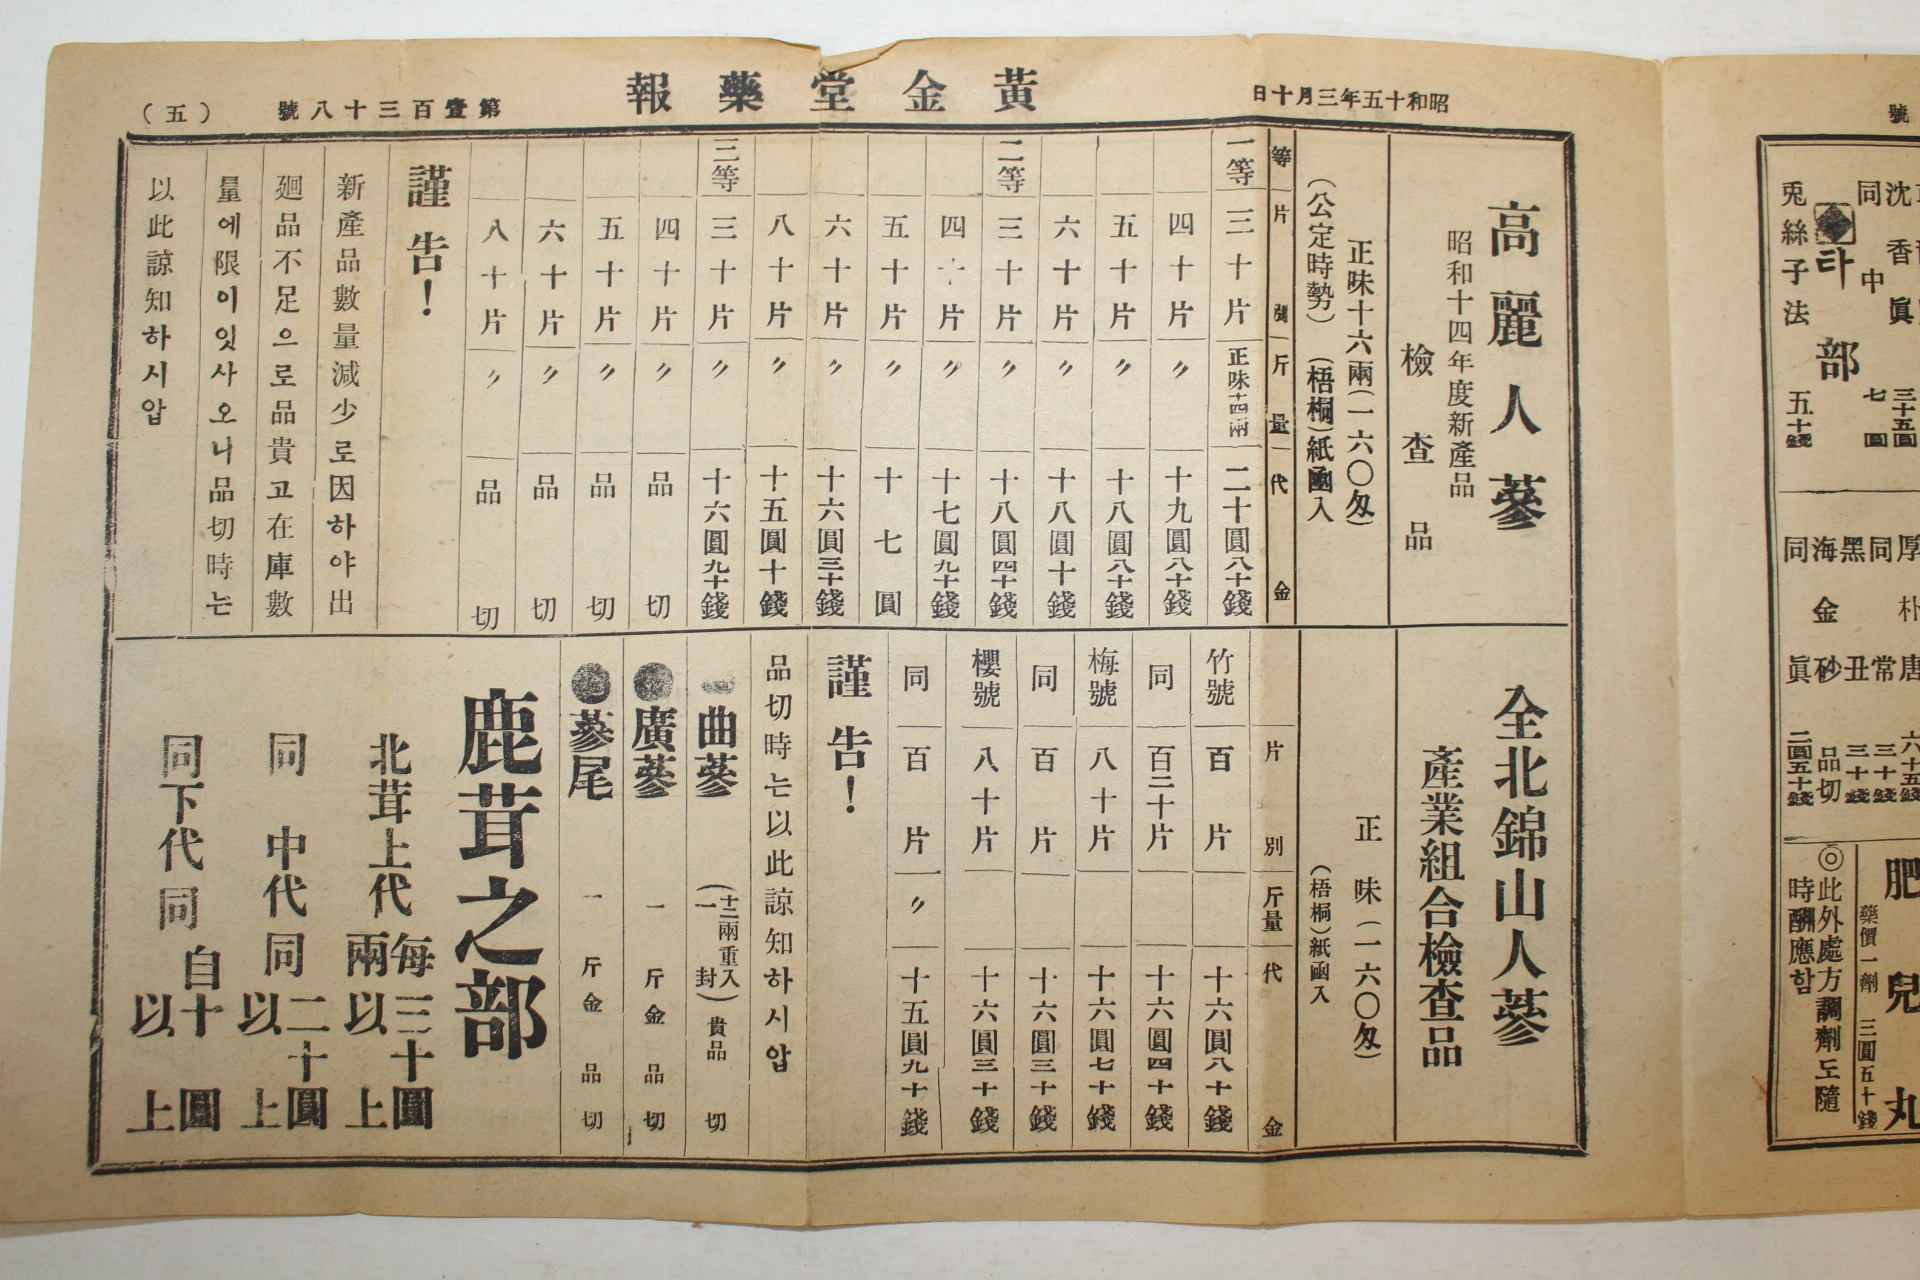 昭和十五年三月十日
黃金堂藥報
第壹百三十八號
(五)
高麗人蔘
昭和十四年度新產品
檢查品
正味十六兩(一六〇匁)
(公定時勢) (梧桐)紙函入
等 片 別 斤量 代金
一等 三十片 正味十四兩 二十圓八十錢
四十片 〃 十九圓八十錢
五十片 〃 十八圓八十錢
六十片 〃 十八圓八十錢
二等 三十片 〃 十八圓四十錢
四十片 〃 十七圓九十錢
五十片 〃 十七圓
六十片 〃 十六圓三十錢
八十片 〃 十五圓十錢
三等 三十片 〃 十六圓九十錢
四十片 〃 品切
五十片 〃 品切
六十片 〃 品切
八十片 〃 品切
謹告!
新產品數量減少로因하야出
廻品不足으로品貴고在庫數
量에限이잇사오니品切時는
以此諒知하시압
全北錦山人蔘
產業組合檢查品
正味(一六〇匁)
(梧桐)紙函入
片別 斤量 代金
竹號 百片 十六圓八十錢
同 百二十片 十六圓四十錢
梅號 八十片 十六圓七十錢
同 百片 十六圓三十錢
櫻號 八十片 十六圓三十錢
同 百片 〃 十五圓九十錢
謹告!
品切時는以此諒知하시압
曲蔘 (十二兩重入一封) 貴品切
廣蔘 一斤金 品切
蔘尾 一斤金 品切
鹿茸之部
北茸上代 每兩三十圓以上
同 中代 同二十圓以上
同下代 同自十圓以上
號
沈香眞 三十五圓
同 中 七圓
타部
兎絲子法 五十錢
厚朴唐 六十五錢
同 常 三十錢
黑丑 三十錢
海金砂 品切
同 眞 二圓五十錢
肥兒丸
藥價一劑 三圓五十錢
◎此外處方調劑도隨
時酬應함